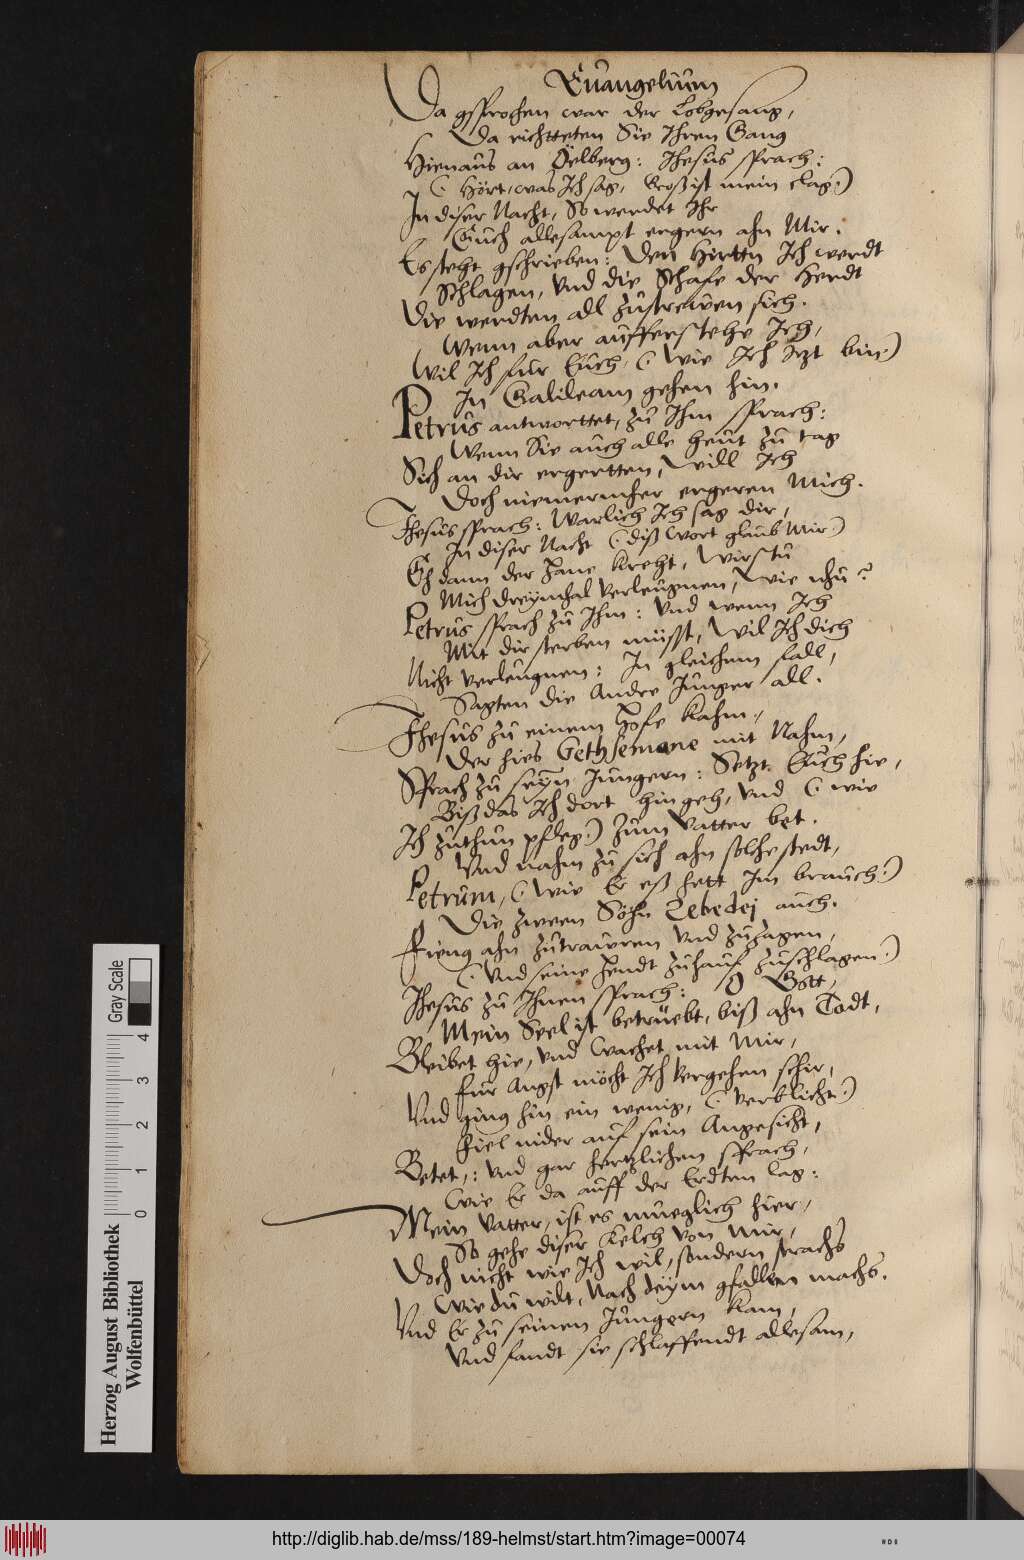 Euangelium
Da gsprochen war der Lobgesang,
Da richtteten Sie Ihren Gang
Hienaus an Öelberg: Jhesus sprach:
(: Hört, was Ich sag, Groß ist mein clag:)
In diser Nacht, So werdet Ihr
Euch allesampt ergern ahn Mir.
Es steht gschrieben: Den Hirttn Ich werdt
Schlagen, Vnd die Schafe der Herdt
Die werdten all zustrewen sich.
Wenn aber aufferstehe Ich,
Wil Ich für Euch, (: wie Ich Jtzt bin:)
In Galileam gehen hin.
Petrus antworttet, zu Ihm sprach:
Wenn Sie auch alle heut zu tag
Sich an dir ergertten, Will Ich
Doch niemermher ergeren Mich.
Jhesus sprach: Warlich Ich sag dir,
In diser Nacht (: diß Wort glaub Mir:)
Eh dann der Hane kreht, Wirstu
Mich dreymhal verleugnen, Wie nhu?
Petrus sprach zu Ihm: Vnd wenn Ich
Mit dir sterben müsst, Wil Ich dich
Nicht verleugnen: In gleichem fall,
Sagten die Andre Junger all.
Jhesus zu einem Hofe kahm,
Der hies Gethsemane mit Nahm,
Sprach zu seyn Jungern: Setzt Euch hie,
Biß das Ich dort hin geh, Vnd (: wie
Ich zuthun pfleg:) Zum Vatter bet.
Vnd nahm zu sich ahn solche stedt,
Petrum, (: Wie Er eß hett Im brauch:)
Die zween Söhn Zebedej auch.
Fieng ahn zutrawren vnd zuzagen,
(: Vnd seine Hendt zuhauf zuschlagen:)
Jhesus zu Ihnen sprach: O Gott,
Mein Seel ist betrüebt, biß ahn Todt,
Bleibet hie, vnd Wachet mit Mir,
Für Angst möcht Ich vergehen schir,
Vnd ging hin ein wenig, (: verklicht:)
Fiel nider auf sein Angesicht,
Betet,: vnd gar hertzlichen sprach,
Wie Er da auff der Erdten lag:
Mein Vatter, ist es mueglich hier,
So gehe diser Kelch von Mir,
Doch nicht wie Ich wil, sondern strachs
Wie du wilt, Nach deym gfallen machs.
Vnd Er zu seinen Jungern kam,
Vnd fandt sie schlaffendt allesam,
Herzog August Bibliothek
Wolfenbüttel
Gray Scale
0 1 2 3 4
http://diglib.hab.de/mss/189-helmst/start.htm?image=00074